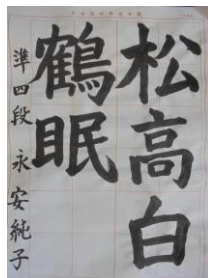 松高白
鶴眠
準四段 永安純子